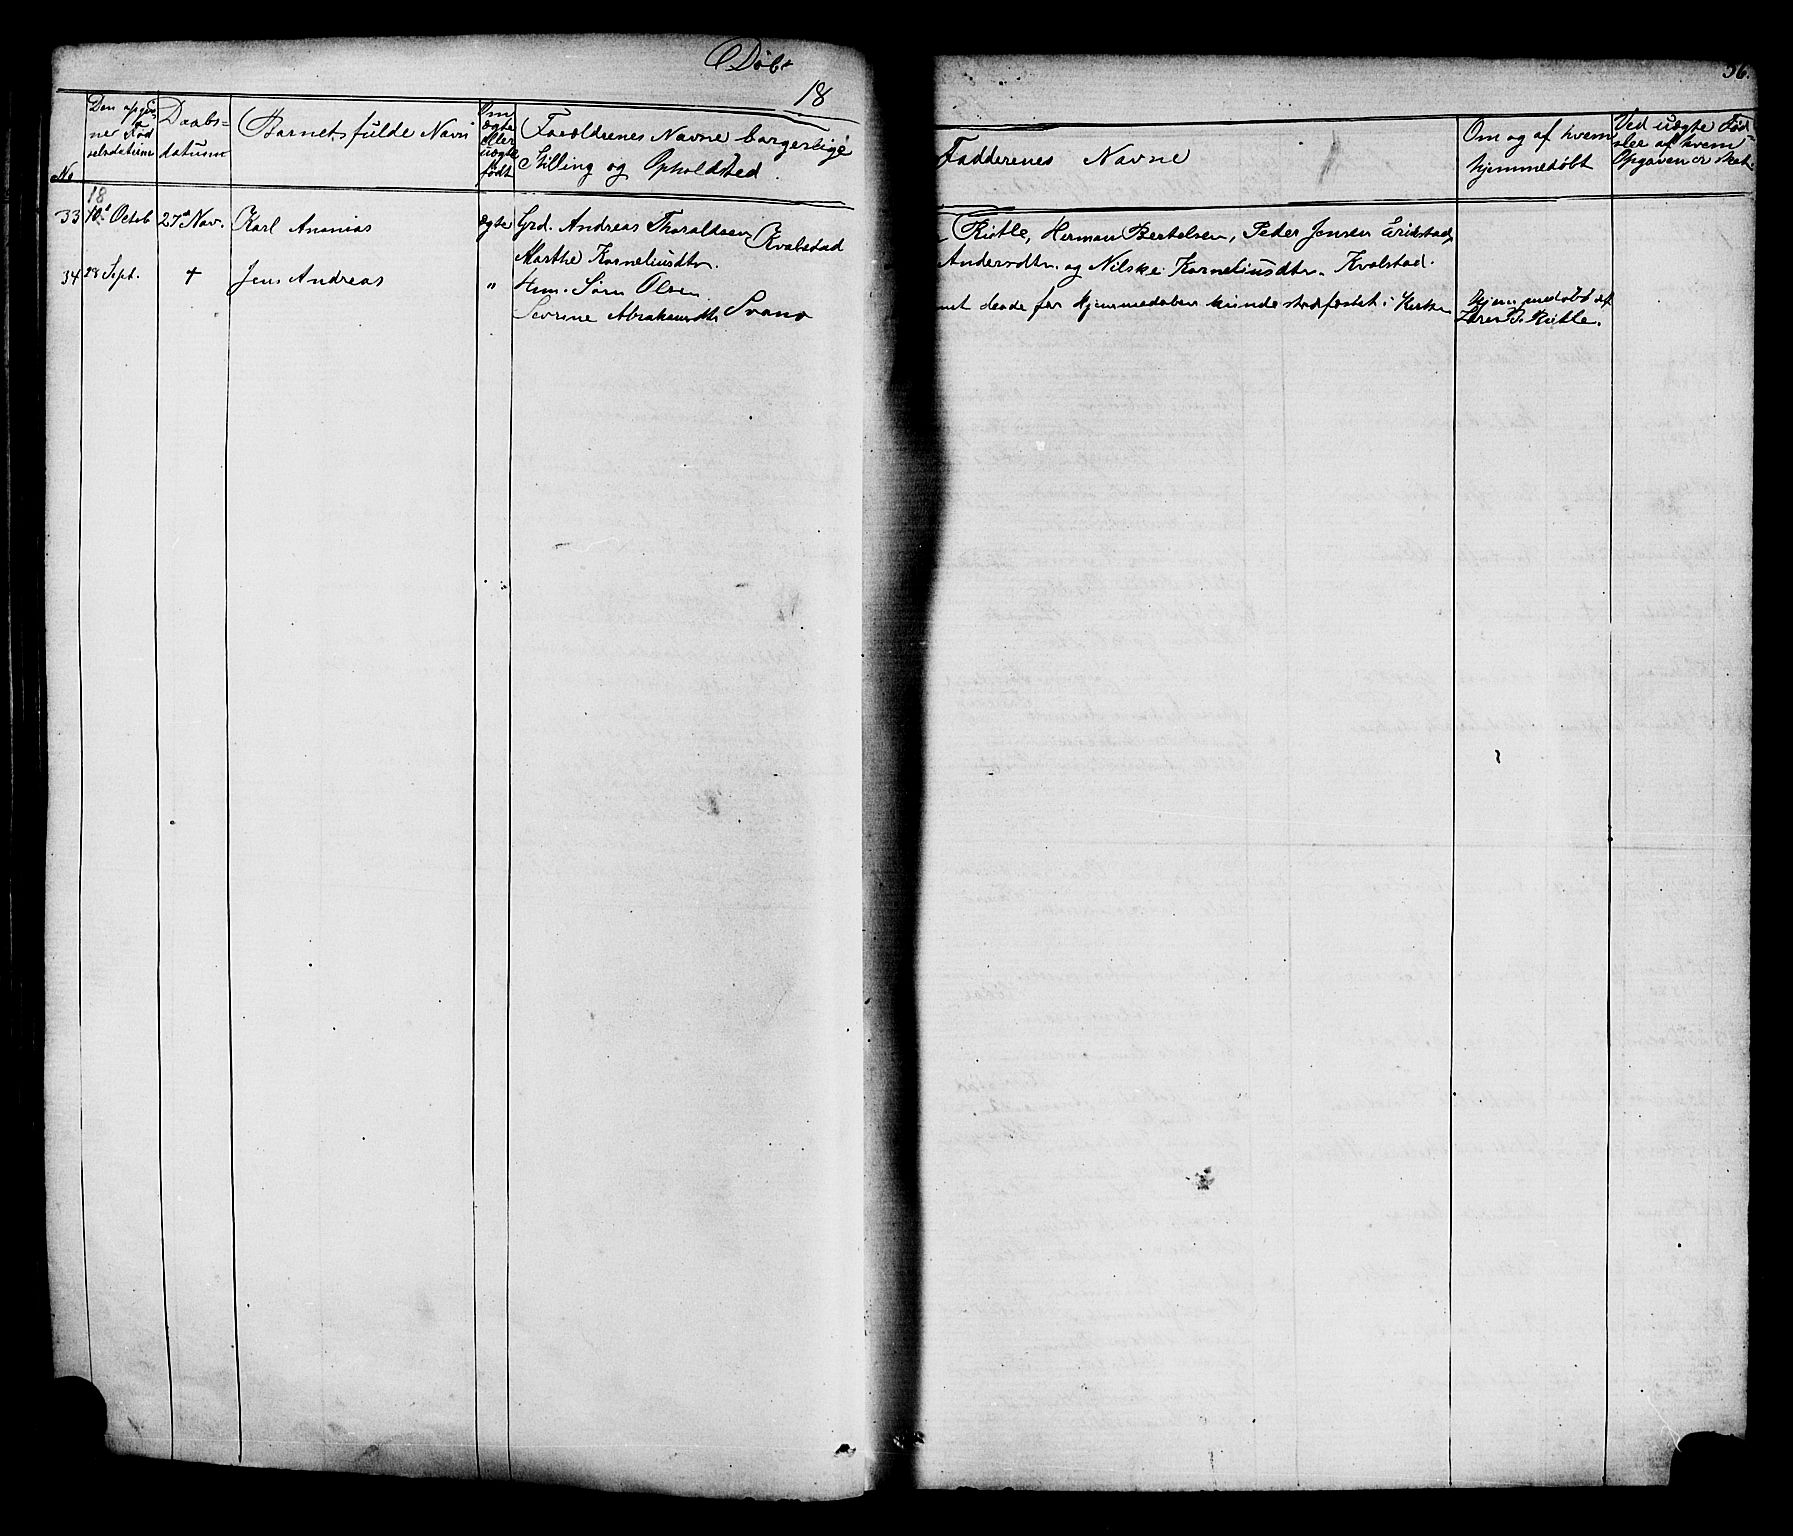 Døbt
18
56.
No
Den opgivne Fødselsdatum
Daabsdatum
Barnets fulde Navn
Om ægte eller uægte født
Forældrenes Navne borgerlige
Stilling og Opholdsted.
Fadderenes Navne
Om og af hvem
hjemmedøbt
Ved uægte Fødsler af hvem
Opgaven er sket.
18
33 10de Octob 27de Nov. Karl Ananias ægte Grd. Andreas Thoraldsen Kvalstad
Marthe Korneliusdtr.
Rutle, Herman Bertelsen, Peder Jensen Erikstad,
Andersdtr. og Nilske Korneliusdtr. Kvalstad.
34 28 Sept. + Jens Andreas " Hm. Sørn Olsen
Sevrine Abrahamsdtr Svanø
døde før Hjemmedaaben kunde stadfæstet i Kirken
Hjemmedøbt af
Lærer Rutle.